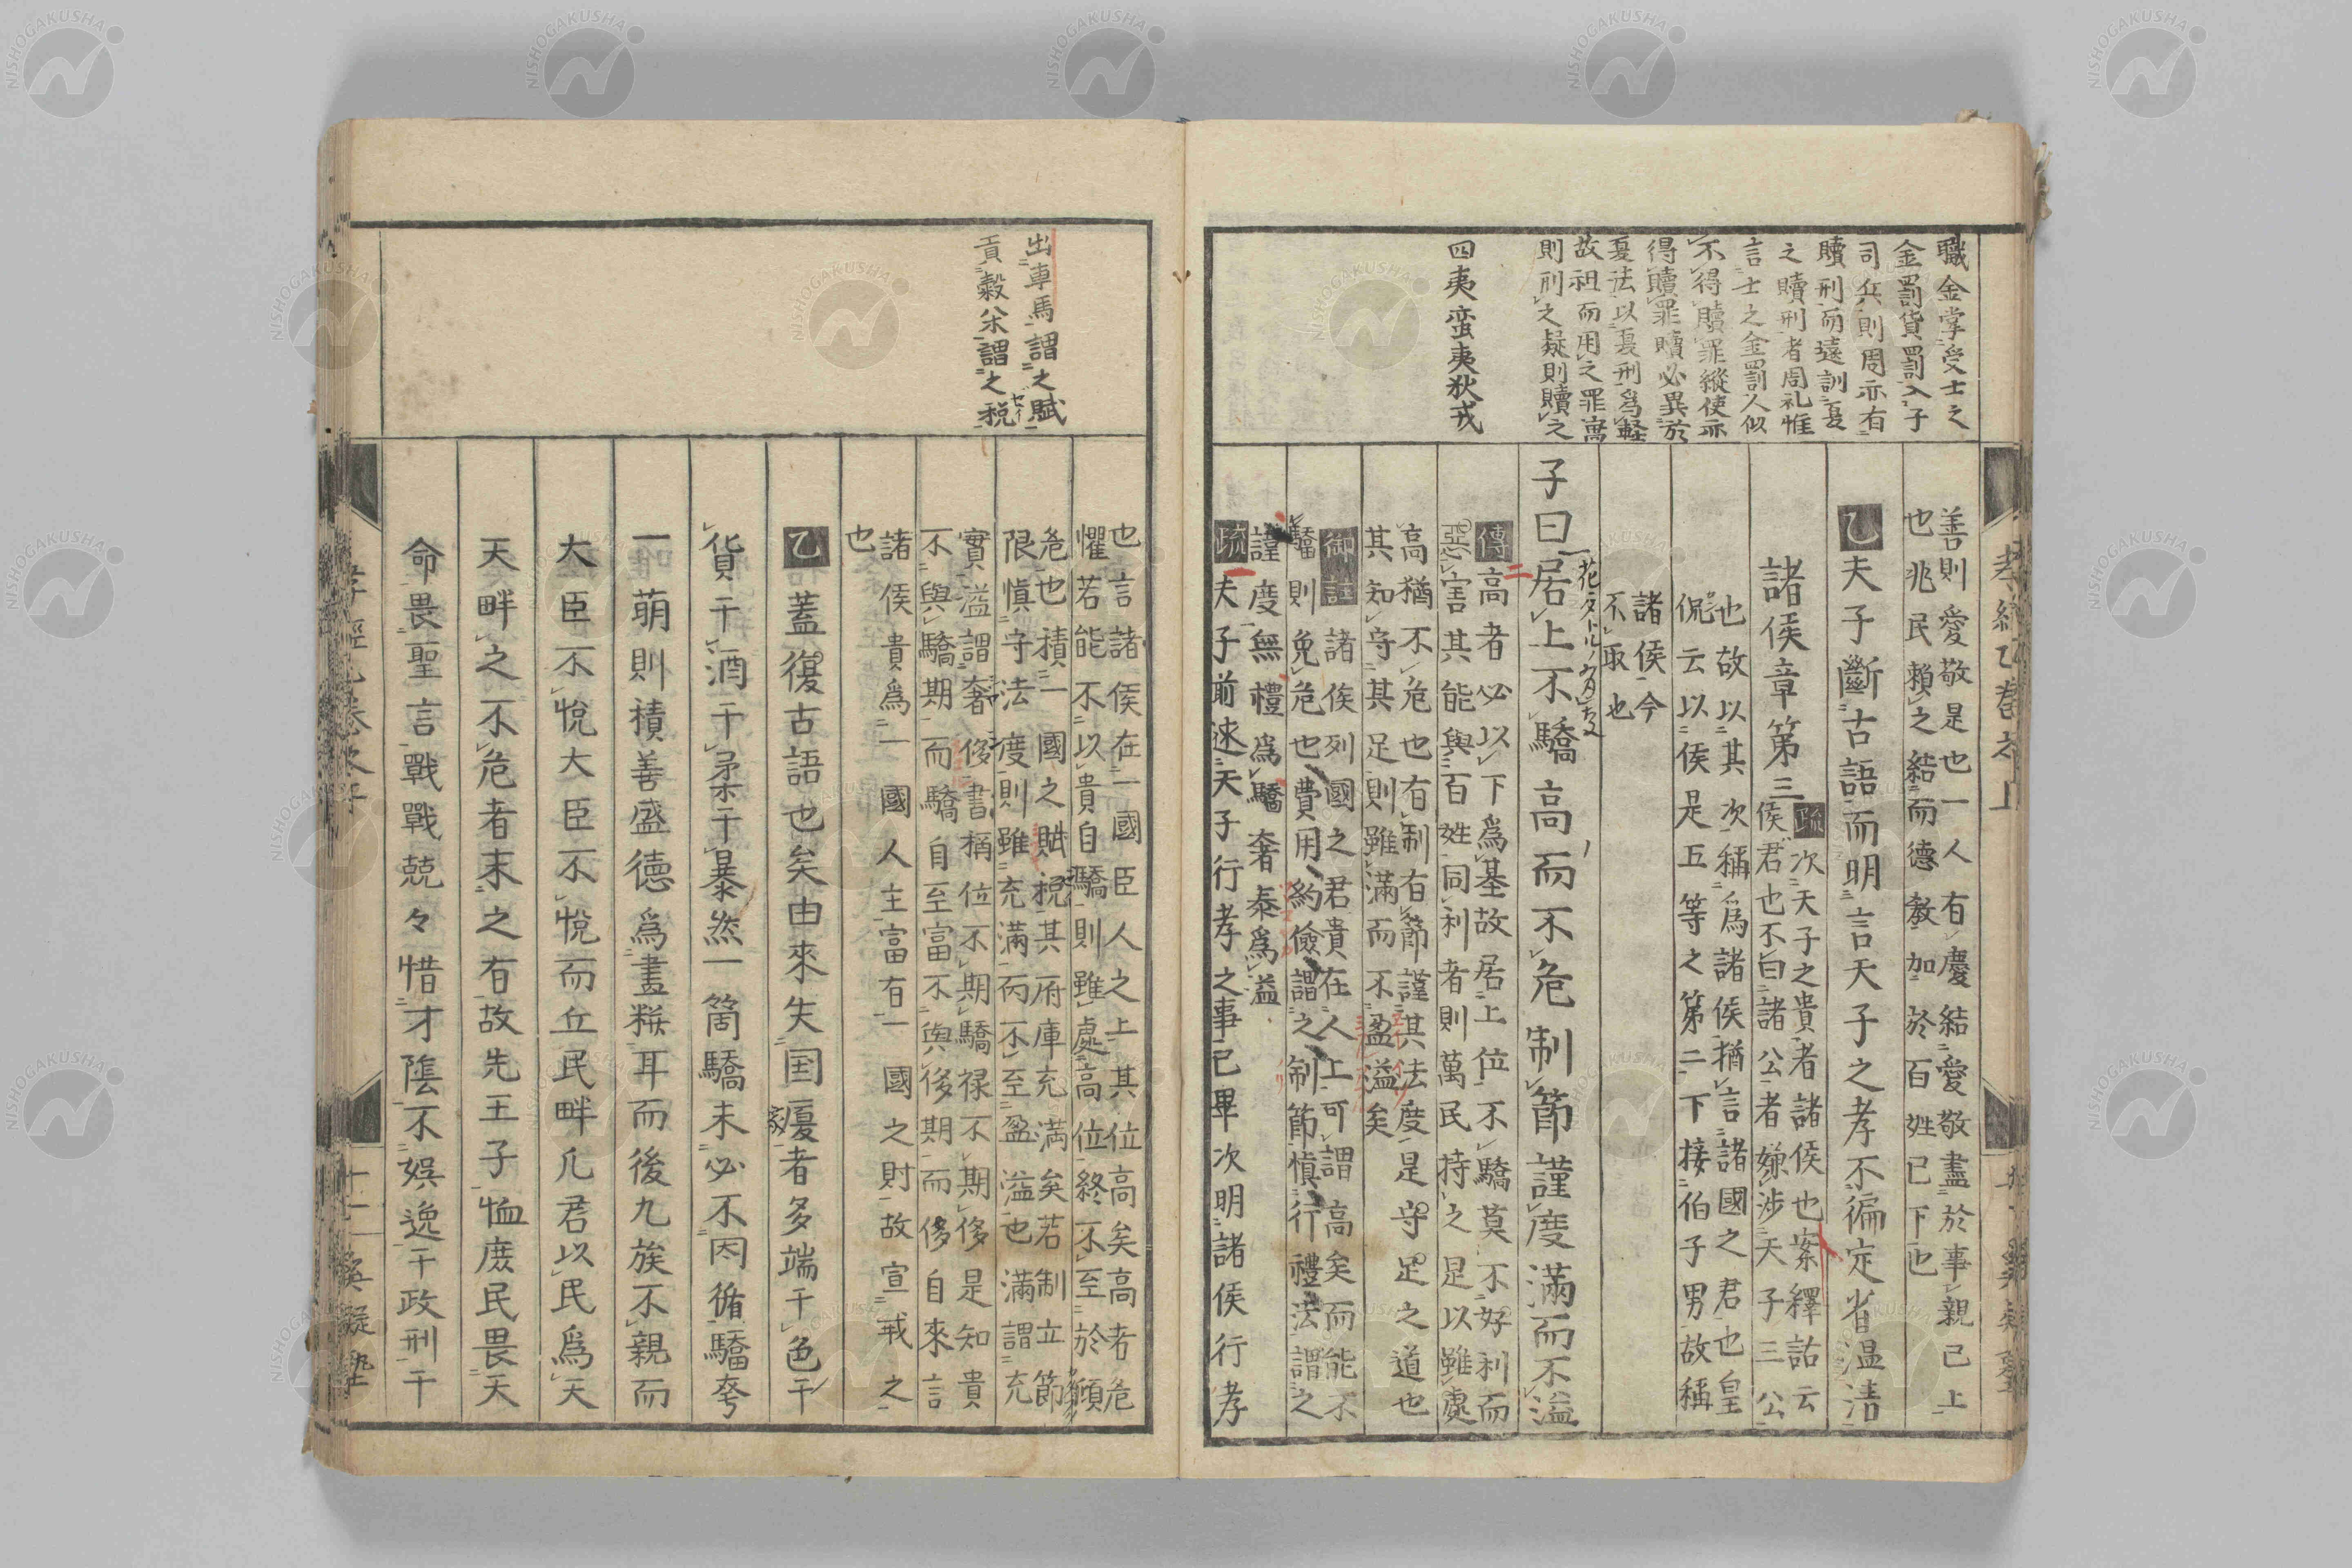 職金掌受士之
金罰貨罰入于
司兵則周亦有
贖刑而遠訓夏
之贖刑者周礼惟
言士之金罰人似
不得贖罪縱使亦
得贖罪贖必異於
夏法以夏刑為輕
故祖而用之罪實
則刑之疑則贖之
四夷蛮夷狄戎
善則愛敬是也一人有慶結愛敬盡於事親已上
也兆民賴之結而德教加於百姓已下也
乙夫子斷古語而明言天子之孝不徧定省温清
諸侯章第三
疏次天子之貴者諸侯也案釋詁云
侯君也不曰諸公者嫌涉天子三公
也故以其次稱為諸侯猶言諸國之君也皇
侃云以侯是五等之第二下接伯子男故稱
諸侯今
不取也
子曰居上不驕高而不危制節謹度滿而不溢
傳高者必以下為基故居上位不驕莫不好利而
惡害其能與百姓同利者則萬民持之是以雖處
高猶不危也有制有節謹其法度是守足之道也
其知守其足則雖滿而不盈溢矣
御註諸侯列國之君貴在人上可謂高矣而能不
驕則免危也費用約儉謂之制節慎行禮法謂之
謹度無禮為驕奢泰為溢
疏夫子前述天子行孝之事已畢次明諸侯行孝
出車馬謂之賦
貢穀公米謂之税
也言諸侯在一國臣人之上其位高矣高者危
懼若能不以貴自驕則雖處高位終不至於傾
危也積一國之賦税其府庫充満矣若制立節
限慎守法度則雖充滿而不至盈溢也滿謂充
實溢謂奢侈書稱位不期驕禄不期侈是知貴
不與驕期而驕自至富不與侈期而侈自來言
諸侯貴為一國人主富有一國之財故宣戒之
也
乙蓋復古語也矣由來失国廢者多端于色于
貨于酒于柔于暴然一箇驕未必不因循驕夸
一萌則積善盛德為畫粻耳而後九族不親而
大臣不悅大臣不悅而丘民畔凡君以民為天
天畔之不危者末之有故先王子恤庶民畏天
命畏聖言戰戰兢々惜才蔭不娯逸于政刑于